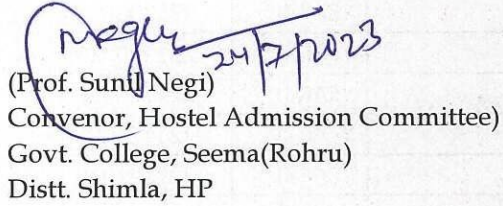 Negi
24/7/2023
(Prof. Sunil Negi)
Convenor, Hostel Admission Committee)
Govt. College, Seema(Rohru)
Distt. Shimla, HP